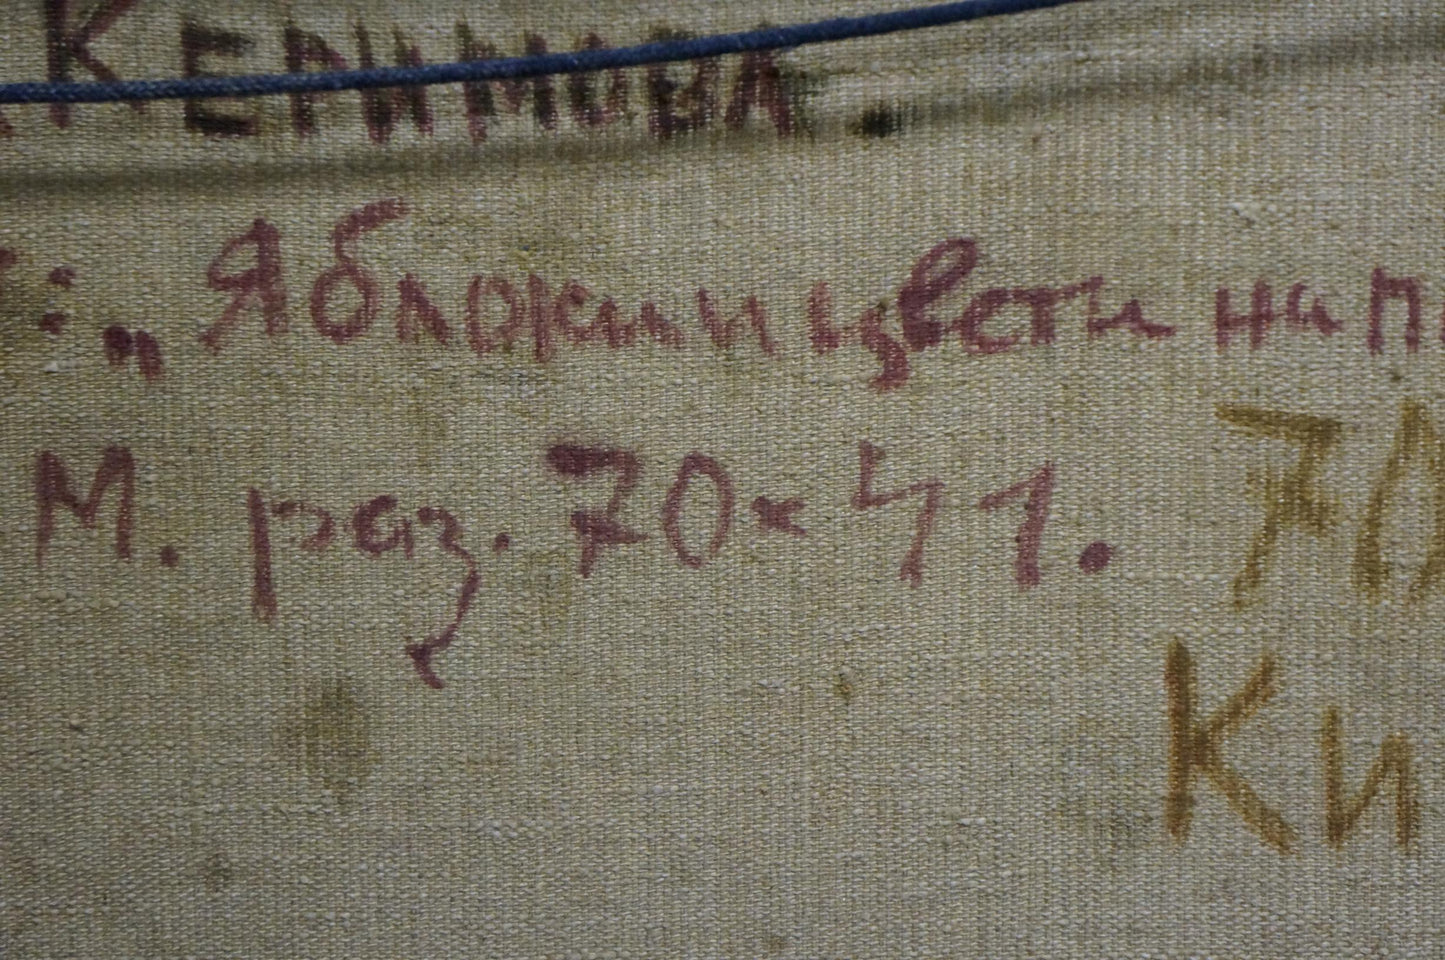 Керимова
: „Яблоки и цвети на п
М. раз. 70 × 41. 70
Ки